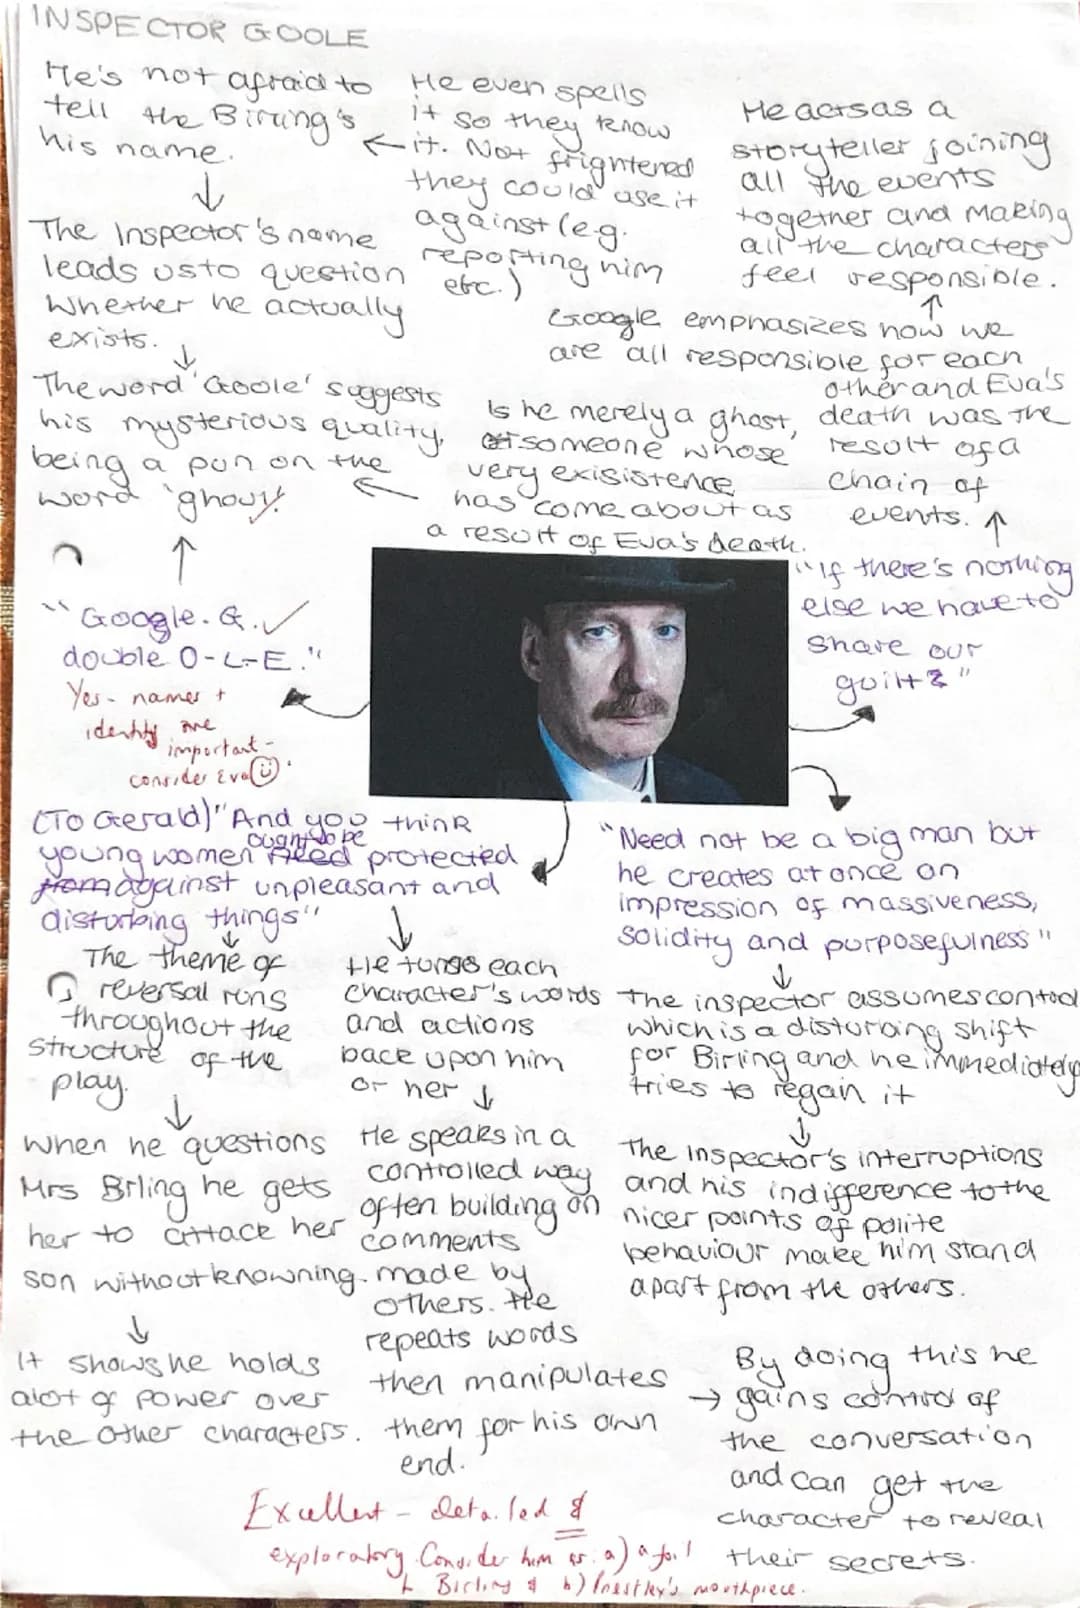 INSPECTOR GOOLE
He's not afraid to
tell the Birring's
his name.
He even spells
it so they know
it. Not frightened
they could use it
against (e.g.
reporting him
etc.)
He acts as a
storyteller joining
all the events
together and Making
all the characters
feel responsible.
The Inspector's name
leads us to question
Whether he actually
exists.
Google emphasizes how we
are all responsible for each
other and Eva's
death was the
result of a
chain of
events.
The word 'Goole' suggests
his mysterious quality,
being a pun on the
word 'ghoul'.
Is he merely a ghost,
someone whose
very exisistence
has come about as
a result of Eva's death.
"Google. G.
double O-L-E."
Yes - names +
identity are
important -
consider Eva
"If there's nothing
else we have to
share our
guilt"
(To Gerald) "And you think
young women ought to be protected
against unpleasant and
disturbing things"
"Need not be a big man but
he creates at once an
impression of massiveness,
solidity and purposefulness"
The theme of
reversal runs
throughout the
structure of the
play.
He turns each
character's words
and actions
back upon him
or her
The inspector assumes control
which is a disturbing shift
for Birling and he immediately
tries to regain it
When he questions
Mrs Birling he gets
her to attack her
son without knowning.
He speaks in a
controlled way
often building on
comments
made by
others. He
repeats words
then manipulates
them for his own
end.
The Inspector's interruptions
and his indifference to the
nicer points of polite
behaviour make him stand
apart from the others.
It shows he holds
alot of power over
the other characters.
By doing this he
gains control of
the conversation
and can get the
character to reveal
their secrets.
Excellent - detailed &
exploratory. Consider him as: a) a foil
t Birling & b) Priestley's mouthpiece.